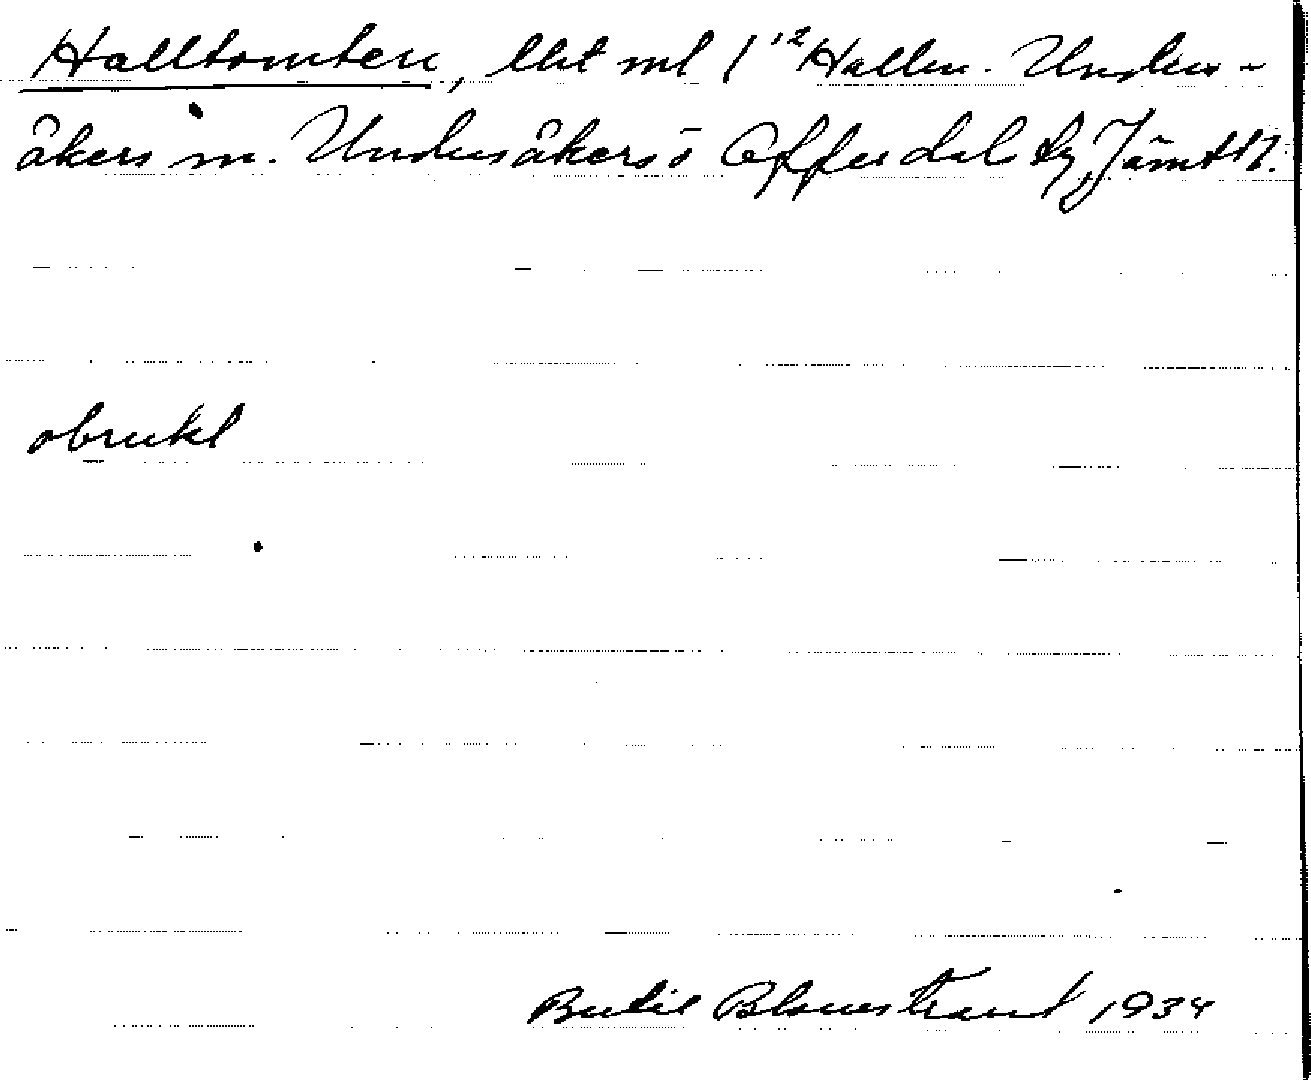 Halltomten, lht ml 1¹² Hallen. Unders-
åkers sn. Undersåkers o Offerdal tg, Jämtl l.
obrukl
Bertil Blomstrand 1934